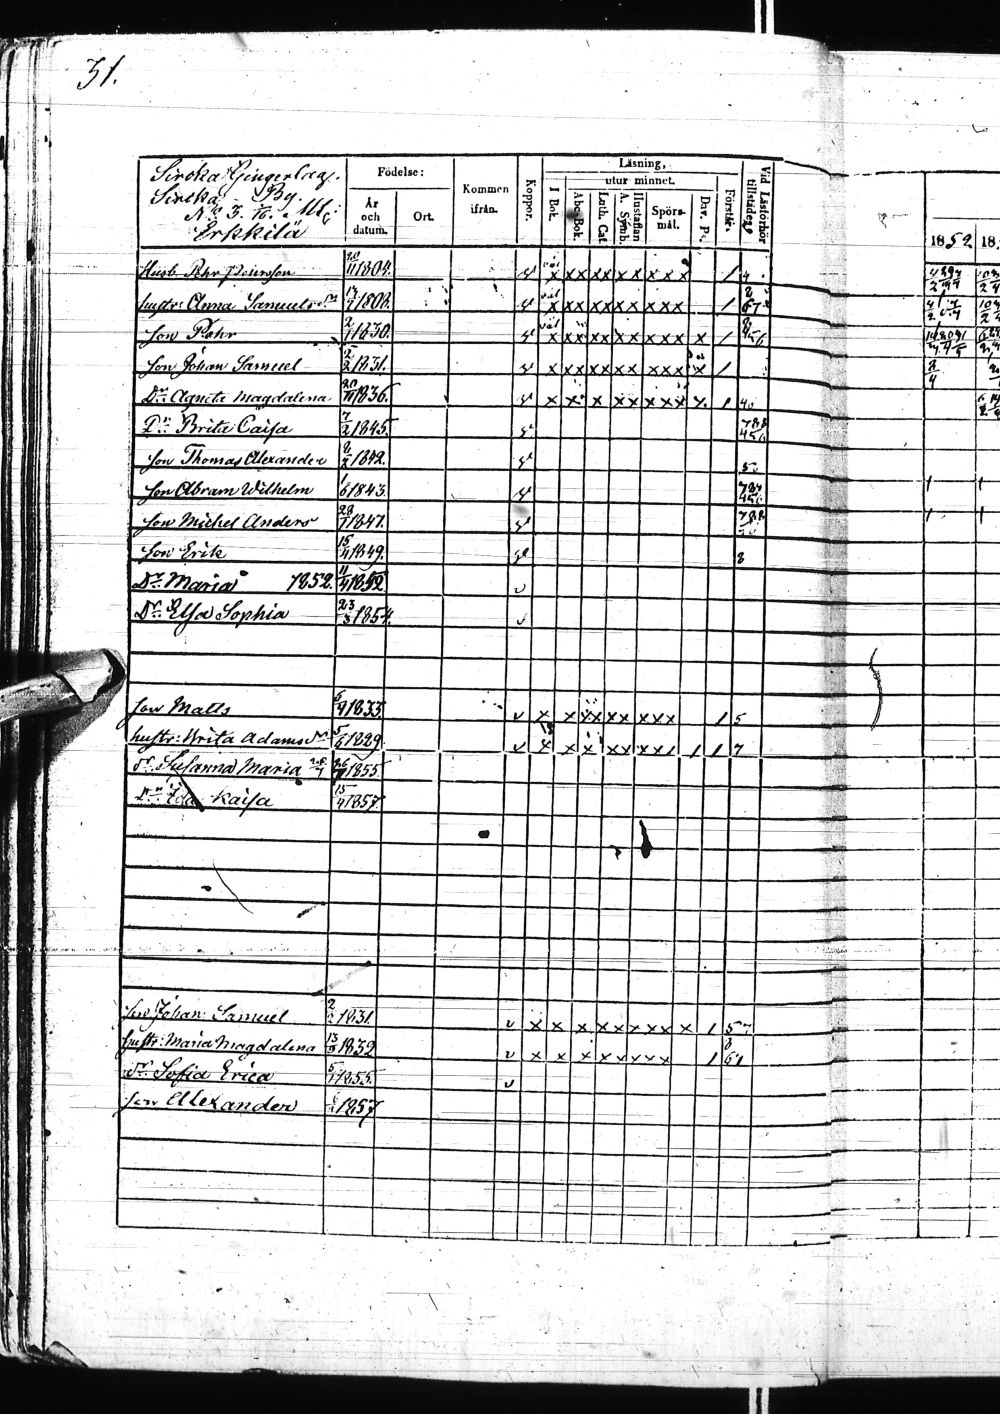 31.
Siroka Gingerlag.
Siroka By.
No 3.
Erkkilä
Födelse:
År och datum.
Ort.
Kommen ifrån.
Koppor.
Läsning,
utur minnet.
I Bok.
Abc-Bok.
Luth. Cat.
A. Symb.
Hustaflan
Spörsmål.
Dav. Ps.
Förstår.
Vid Läsförhör tillstädes
1852 18
Husb. Pehr 20/11 1804. väl x x x x x x x x x x 1
hustr: Anna Samuelsdr 17/7 1808. väl x x x x x x x x x 1
son Pehr 2/1 1830. väl x x x x x x x x x x 1 456
son Johan Samuel 2/2 1831. x x x x x x x x x x 1
Dr Agneta Magdalena 20/11 1836. x x x x x x x x x 1
Dr Brita Caisa 7/2 1845. 788 456
son Thomas Alexander 8/2 1842. 50
son Abram Wilhelm 1/6 1843. 787 456
son Michel Anders 28/1 1847. 788
son Erik 15/4 1849. 8
Dr Maria 1852. 11/4 1852
Dr Elsa Sophia 23/3 1854.
son Matts 6/9 1833. x x x x x x x x x 1 5
hustr: Brita Adamsdr 5/6 1829 x x x x x x x 1 1 1 7
dr Susanna Maria 26/7 1855
Dr Ida Kaisa 15/4 1857.
son Johan Samuel 2/2 1831. x x x x x x x x x 1 57
hustr: Maria Magdalena 13/9 1832 x x x x x x x x 1 67
dr Sofia Erica 5/1 1855.
son Allexander 1857